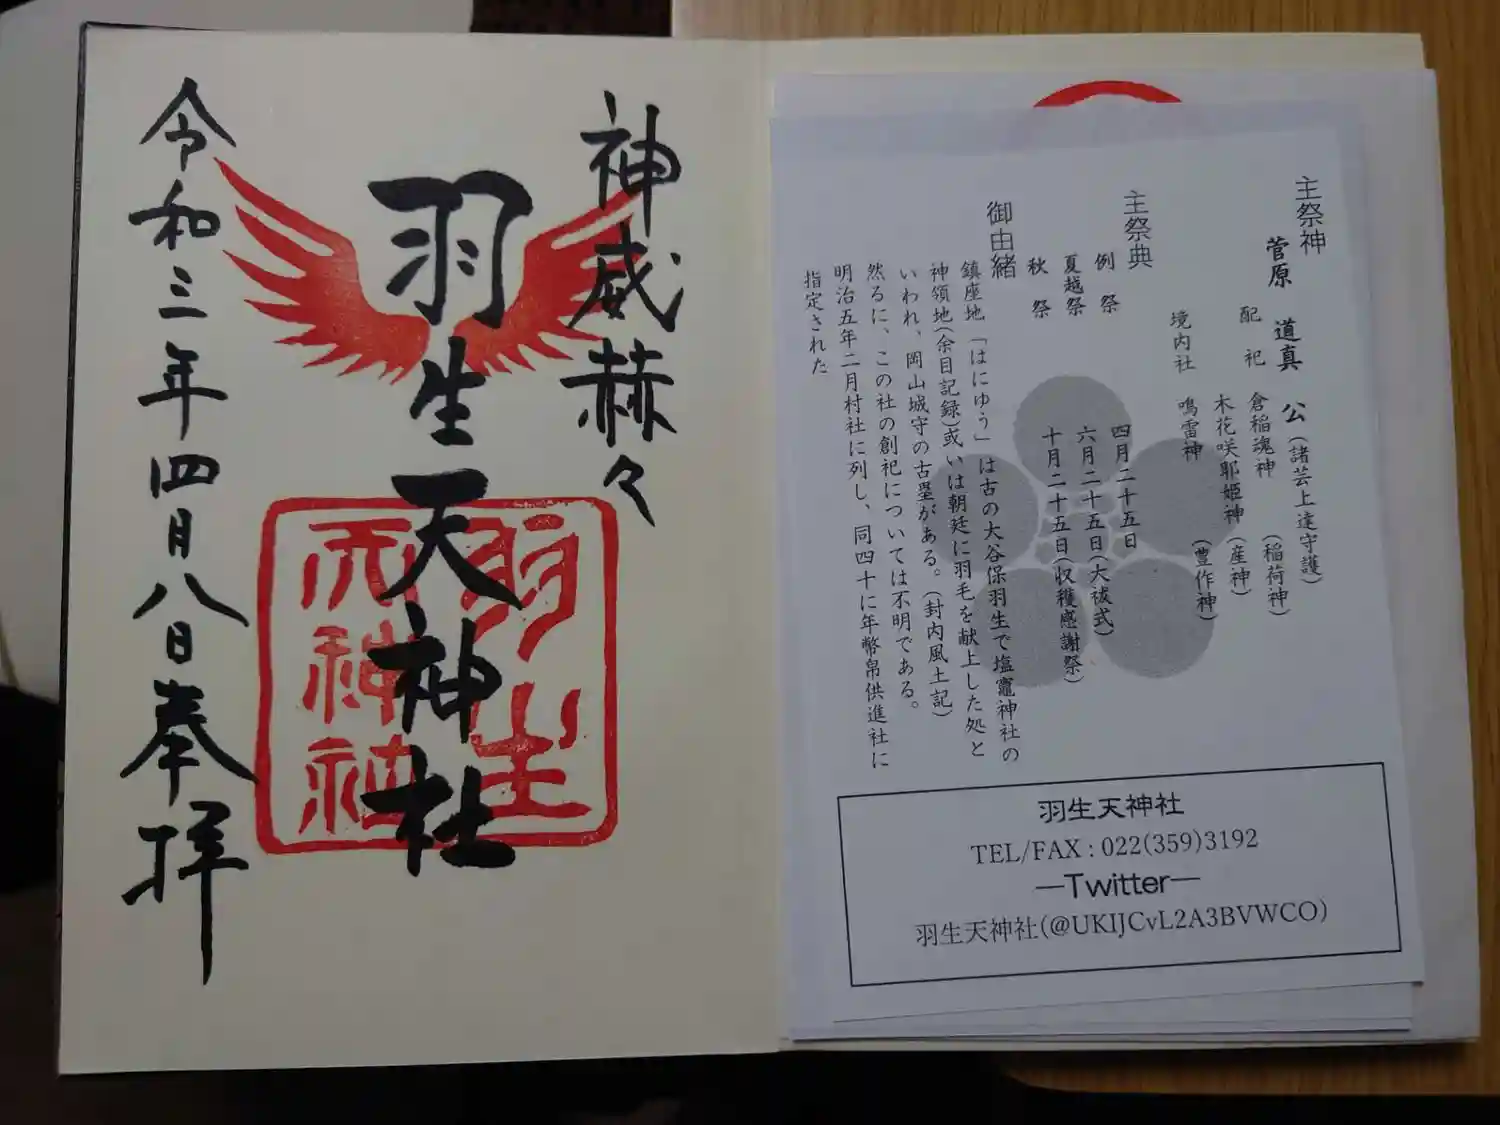 神威赫々
羽生天神社
令和三年四月八日奉拝
羽生
天神社
主祭神
菅原 道真 公(諸芸上達守護)
配祀 倉稲魂神 (稲荷神)
木花咲耶姫神 (産神)
境内社 鳴雷神 (豊作神)
主祭典
例祭 四月二十五日
夏越祭 六月二十五日(大祓式)
秋祭 十月二十五日(収穫感謝祭)
御由緒
鎮座地「はにゆう」は古の大谷保羽生で塩竈神社の
神領地(余目記録)或いは朝廷に羽毛を献上した処と
いわれ、岡山城守の古塁がある。(封内風土記)
然るに、この社の創祀については不明である。
明治五年二月村社に列し、同四十に年幣帛供進社に
指定された
羽生天神社
TEL/FAX : 022(359)3192
―Twitter―
羽生天神社(@UKIJCvL2A3BVWCO)